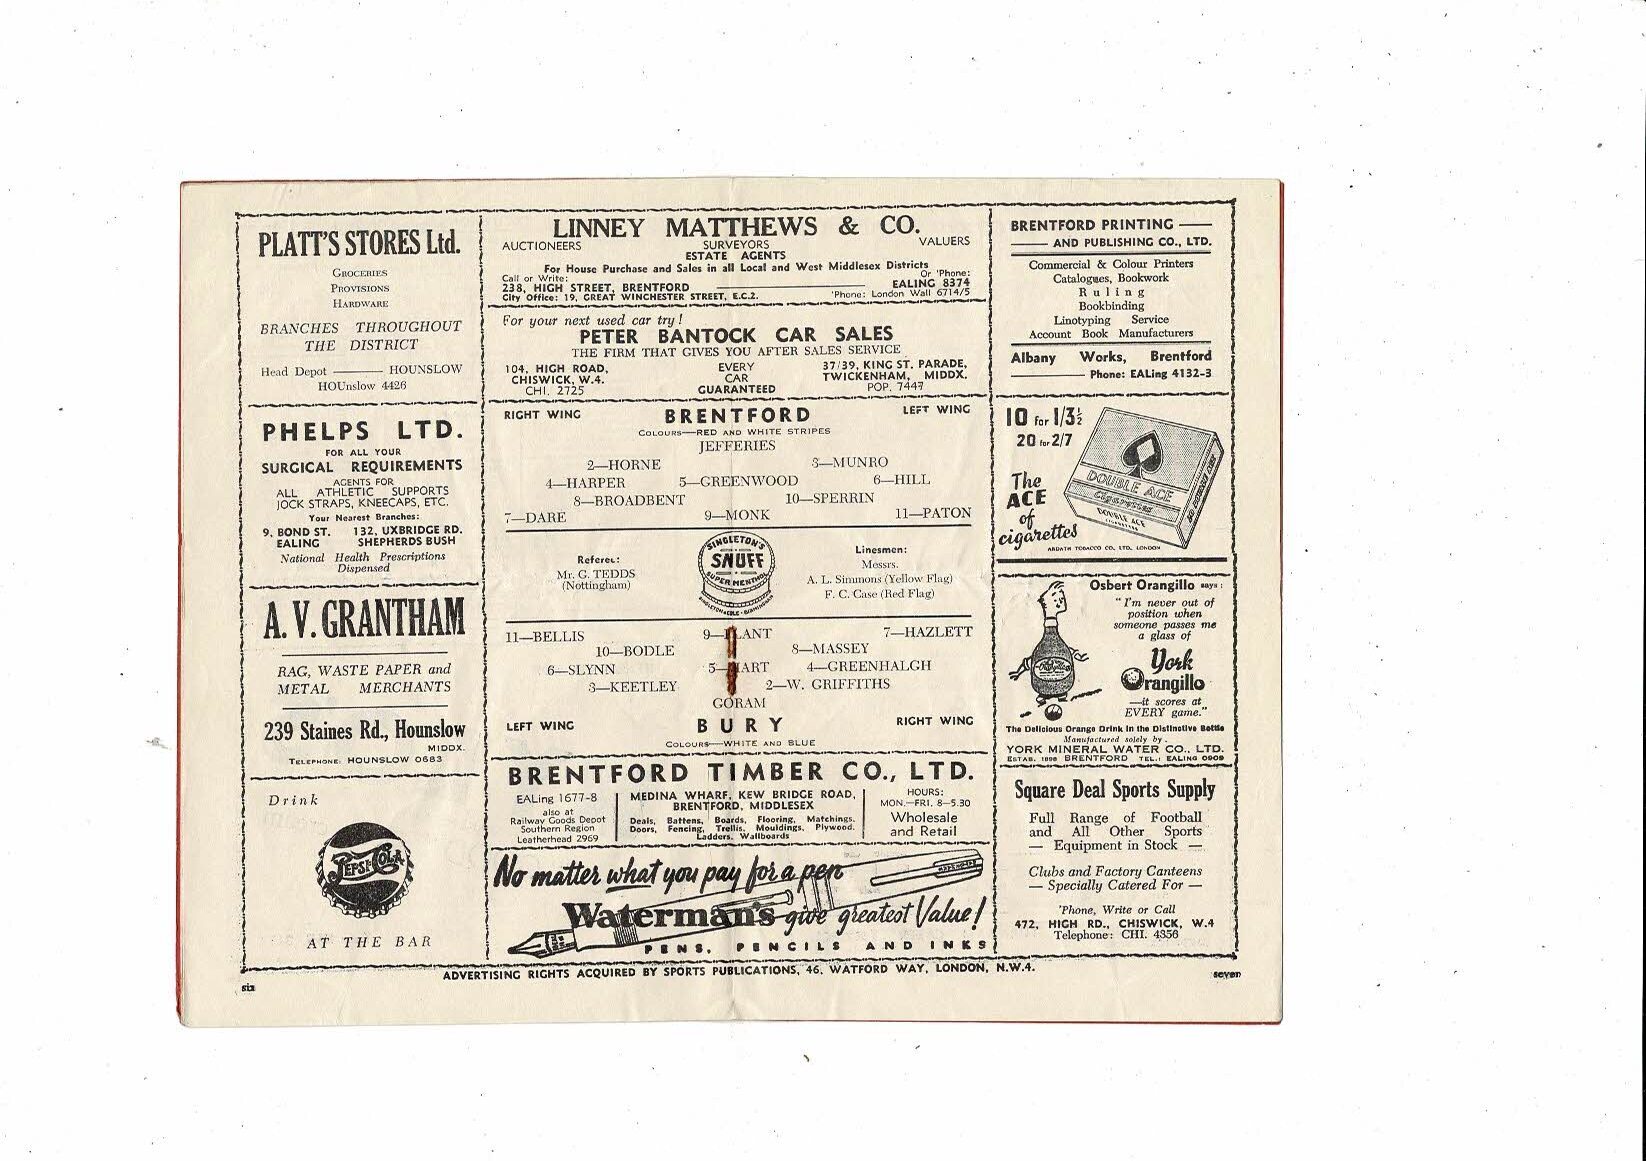 PLATT'S STORES Ltd.
GROCERIES
PROVISIONS
HARDWARE
BRANCHES THROUGHOUT
THE DISTRICT
Head Depot ——— HOUNSLOW
HOUnslow 4426
PHELPS LTD.
FOR ALL YOUR
SURGICAL REQUIREMENTS
AGENTS FOR
ALL ATHLETIC SUPPORTS
JOCK STRAPS, KNEECAPS, ETC.
Your Nearest Branches:
9, BOND ST. 132, UXBRIDGE RD.
EALING SHEPHERDS BUSH
National Health Prescriptions
Dispensed
A. V. GRANTHAM
RAG, WASTE PAPER and
METAL MERCHANTS
239 Staines Rd., Hounslow
MIDDX.
TELEPHONE: HOUNSLOW 0683
Drink
PEPSI-COLA
AT THE BAR
LINNEY MATTHEWS & CO.
AUCTIONEERS SURVEYORS VALUERS
ESTATE AGENTS
For House Purchase and Sales in all Local and West Middlesex Districts
Call or Write: Or 'Phone:
238, HIGH STREET, BRENTFORD ——— EALING 8374
City Office: 19, GREAT WINCHESTER STREET, E.C.2. 'Phone: London Wall 6714/5
For your next used car try!
PETER BANTOCK CAR SALES
THE FIRM THAT GIVES YOU AFTER SALES SERVICE
104, HIGH ROAD, EVERY 37/39, KING ST. PARADE,
CHISWICK, W.4. CAR TWICKENHAM, MIDDX.
CHI. 2725 GUARANTEED POP. 7447
RIGHT WING BRENTFORD LEFT WING
COLOURS—RED AND WHITE STRIPES
JEFFERIES
2—HORNE 3—MUNRO
4—HARPER 5—GREENWOOD 6—HILL
8—BROADBENT 10—SPERRIN
7—DARE 9—MONK 11—PATON
Referee:
Mr. G. TEDDS
(Nottingham)
SINGLETON'S
SNUFF
SUPER MENTHOL
SINGLETON & COLE · BIRMINGHAM
Linesmen:
Messrs.
A. L. Simmons (Yellow Flag)
F. C. Case (Red Flag)
11—BELLIS 9—PLANT 7—HAZLETT
10—BODLE 8—MASSEY
6—SLYNN 5—HART 4—GREENHALGH
3—KEETLEY 2—W. GRIFFITHS
GORAM
LEFT WING BURY RIGHT WING
COLOURS—WHITE AND BLUE
BRENTFORD TIMBER CO., LTD.
EALing 1677-8
also at
Railway Goods Depot
Southern Region
Leatherhead 2969
MEDINA WHARF, KEW BRIDGE ROAD,
BRENTFORD, MIDDLESEX
Deals, Battens, Boards, Flooring, Matchings.
Doors, Fencing, Trellis, Mouldings, Plywood.
Ladders, Wallboards
HOURS:
MON.—FRI. 8—5.30
Wholesale
and Retail
No matter what you pay for a pen
Waterman's give greatest Value!
PENS, PENCILS AND INKS
BRENTFORD PRINTING ——
—— AND PUBLISHING CO., LTD.
Commercial & Colour Printers
Catalogues, Bookwork
Ruling
Bookbinding
Linotyping Service
Account Book Manufacturers
Albany Works, Brentford
——— Phone: EALing 4132-3
10 for 1/3½
20 for 2/7
The
ACE
of
cigarettes
DOUBLE ACE
Cigarettes
DOUBLE ACE
CIGARETTES
ARDATH TOBACCO CO. LTD. LONDON
Osbert Orangillo says:
"I'm never out of
position when
someone passes me
a glass of
York
Orangillo
—it scores at
EVERY game."
The Delicious Orange Drink in the Distinctive Bottle
Manufactured solely by.
YORK MINERAL WATER CO., LTD.
ESTAB. 1898 BRENTFORD TEL.: EALING 0909
Square Deal Sports Supply
Full Range of Football
and All Other Sports
— Equipment in Stock —
Clubs and Factory Canteens
— Specially Catered For —
'Phone, Write or Call
472, HIGH RD., CHISWICK, W.4
Telephone: CHI. 4356
ADVERTISING RIGHTS ACQUIRED BY SPORTS PUBLICATIONS, 46, WATFORD WAY, LONDON, N.W.4.
six
seven